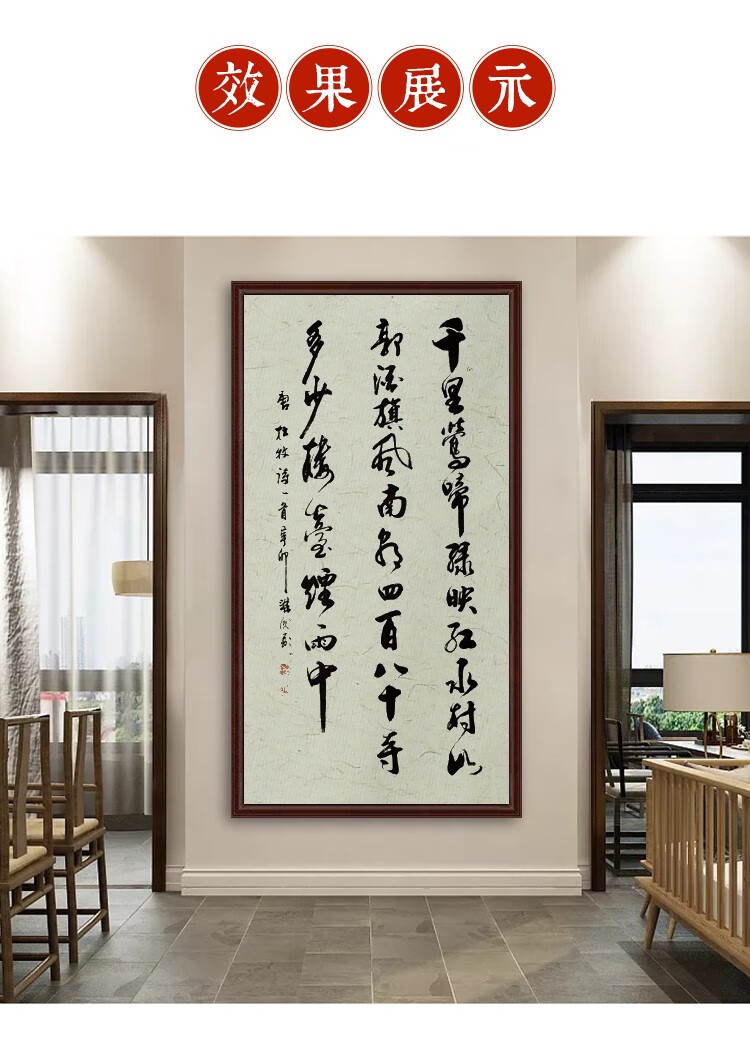 效果展示
千里鶯啼綠映紅水村山
郭酒旗風南朝四百八十寺
多少樓臺煙雨中
唐杜牧詩一首辛卯